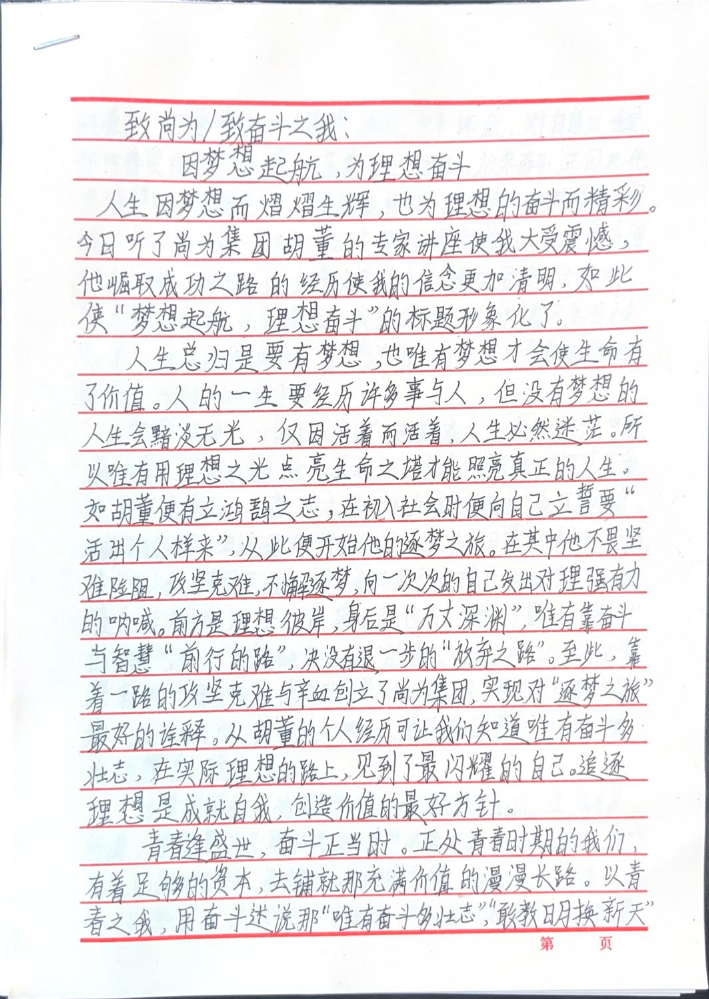 致尚为/致奋斗之我:
因梦想起航,为理想奋斗
人生因梦想而熠熠生辉,也为理想的奋斗而精彩。
今日听了尚为集团胡董的专家讲座使我大受震憾,
他崛取成功之路的经历使我的信念更加清明,如此
使“梦想起航,理想奋斗”的标题形象化了。
人生总归是要有梦想,也唯有梦想才会使生命有
了价值。人的一生要经历许多事与人,但没有梦想的
人生会黯淡无光,仅因活着而活着,人生必然迷茫。所
以唯有用理想之光点亮生命之塔才能照亮真正的人生。
如胡董便有立鸿鹄之志,在初入社会时便向自己立誓要“
活出个人样来”,从此便开始他的逐梦之旅。在其中他不畏坚
难险阻,攻坚克难,不懈逐梦,向一次次的自己发出对理强有力
的呐喊。前方是理想彼岸,身后是“万丈深渊”,唯有靠奋斗
与智慧“前行的路”,决没有退一步的“放弃之路”。至此,靠
着一路的攻坚克难与辛血创立了尚为集团,实现对“逐梦之旅”
最好的诠释。从胡董的个人经历可让我们知道唯有奋斗多
壮志,在实际理想的路上,见到了最闪耀的自己。追逐
理想是成就自我,创造价值的最好方针。
青春逢盛世,奋斗正当时。正处青春时期的我们,
有着足够的资本,去铺就那充满价值的漫漫长路。以青
春之我,用奋斗述说那“唯有奋斗多壮志”,“敢教日月换新天”
第 页